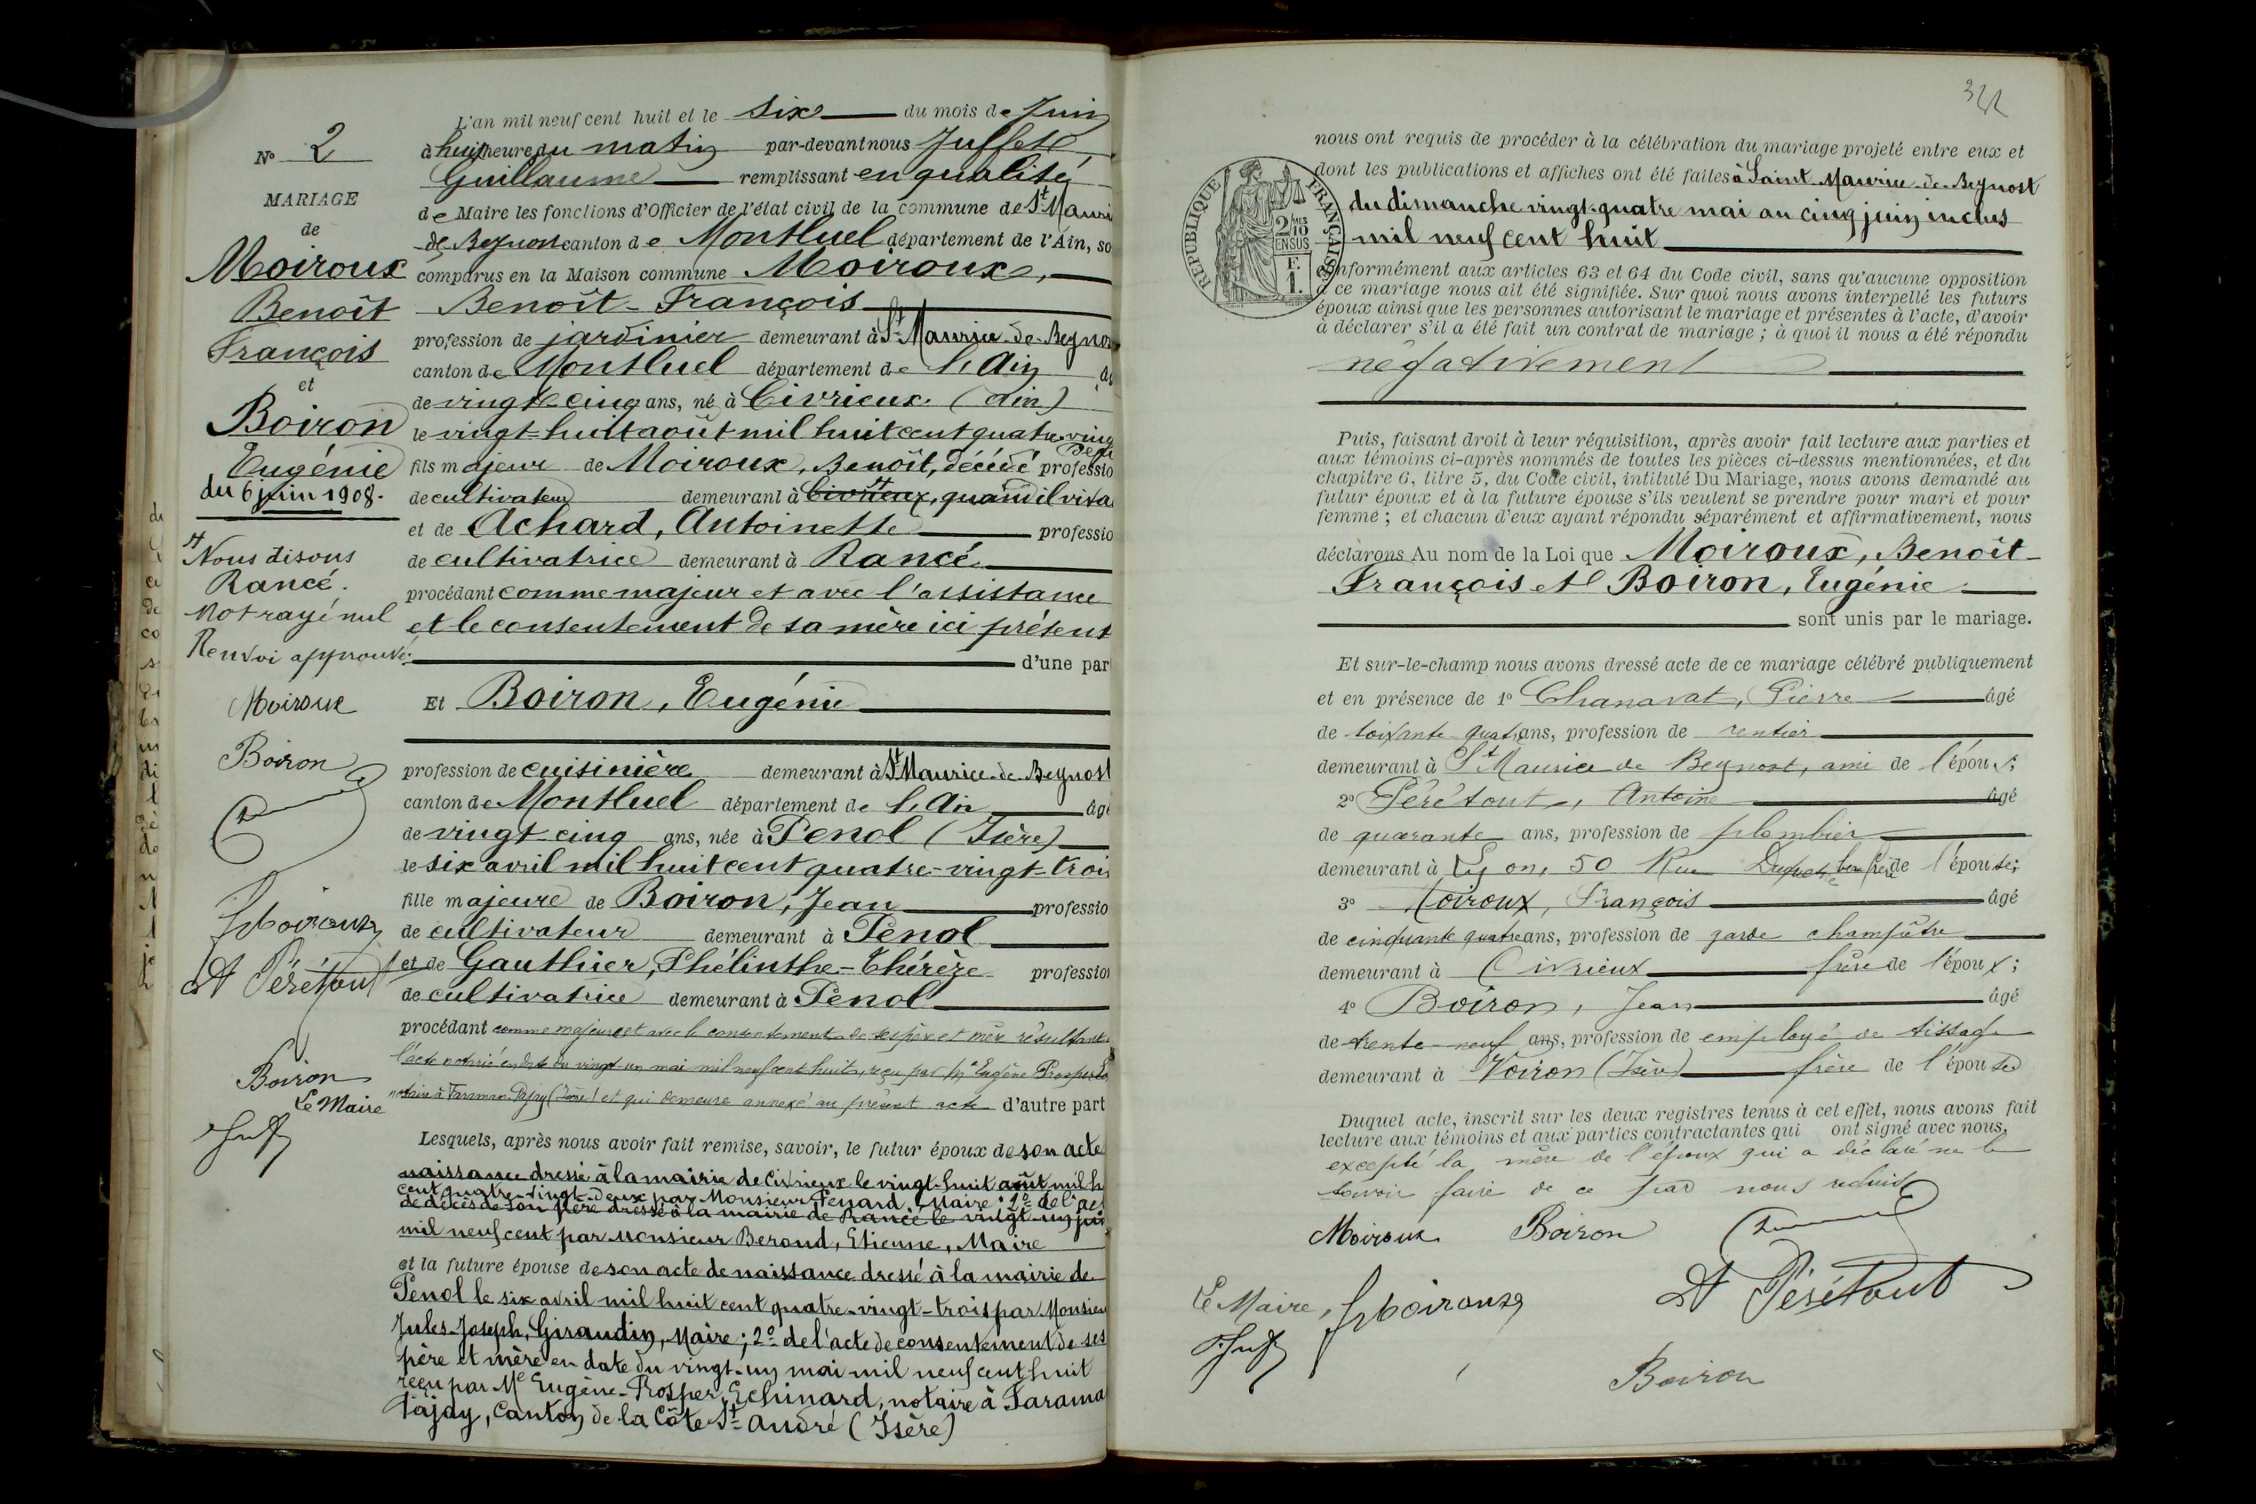 N° 2
MARIAGE
de
Moiroux
Benoît
François
et
Boiron
Eugénie
du 6 juin 1908.
Nous disons
Rancé.
Mot rayé nul
Renvoi approuvé.
Moiroux
Boiron
Moiroux
A Pérétout
Boiron
Le Maire
L'an mil neuf cent huit et le six du mois de Juin
à huit heure du matin par-devant nous Juffet
Guillaume remplissant en qualité
de Maire les fonctions d'Officier de l'état civil de la commune de St Mauri
de Beynost canton de Montluel département de l'Ain, so
comparus en la Maison commune Moiroux,
Benoît-François
profession de jardinier demeurant à St Maurice-de-Beynos
canton de Montluel département de l'Ain
de vingt-cinq ans, né à Civrieux (Ain)
le vingt-huit août mil huit cent quatre-ving
deux
fils majeur de Moiroux, Benoît, décédé professio
de cultivateur demeurant à Civrieux, quand il viva
et de Achard, Antoinette professio
de cultivatrice demeurant à Rancé
procédant comme majeur et avec l'assistance
et le consentement de sa mère ici présent
d'une par
Et Boiron, Eugénie
profession de cuisinière demeurant à St Maurice-de-Beynost
canton de Montluel département de l'Ain âgé
de vingt-cinq ans, née à Penol (Isère)
le six avril mil huit cent quatre-vingt-troi
fille majeure de Boiron, Jean professio
de cultivateur demeurant à Penol
et de Gauthier, Phélinthe-Thérèze professio
de cultivatrice demeurant à Penol
procédant comme majeure et avec le consentement de ses père et mère résultant
l'acte notarié en date du vingt un mai mil neuf cent huit, reçu par Me Eugène Prosper
notaire à Faraman Pajay (Isère) et qui demeure annexé au présent acte d'autre part
Lesquels, après nous avoir fait remise, savoir, le futur époux de son acte
naissance dressé à la mairie de Civrieux le vingt-huit août mil h
cent quatre-vingt-deux par Monsieur Maire; 2° de l'ac
de décès de son père dressé à la mairie de Rancé le vingt-un
mil neuf cent par Monsieur Beroud, Etienne, Maire
et la future épouse de son acte de naissance dressé à la mairie de
Penol le six avril mil huit cent quatre-vingt-trois par Monsieu
Jules-Joseph, Giraudin, Maire; 2° de l'acte de consentement de ses
père et mère en date du vingt-un mai mil neuf cent huit
reçu par Me Eugène-Prosper Echinard, notaire à Farama
Pajay, Canton de la Côte St André (Isère)
RÉPUBLIQUE FRANÇAISE
2/10 MES
EN SUS
F.
1.
nous ont requis de procéder à la célébration du mariage projeté entre eux et
dont les publications et affiches ont été faites à Saint-Maurice-de-Beynost
du dimanche vingt-quatre mai au cinq juin inclus
mil neuf cent huit
conformément aux articles 63 et 64 du Code civil, sans qu'aucune opposition
à ce mariage nous ait été signifiée. Sur quoi nous avons interpellé les futurs
époux ainsi que les personnes autorisant le mariage et présentes à l'acte, d'avoir
à déclarer s'il a été fait un contrat de mariage; à quoi il nous a été répondu
négativement
Puis, faisant droit à leur réquisition, après avoir fait lecture aux parties et
aux témoins ci-après nommés de toutes les pièces ci-dessus mentionnées, et du
chapitre 6, titre 5, du Code civil, intitulé Du Mariage, nous avons demandé au
futur époux et à la future épouse s'ils veulent se prendre pour mari et pour
femme; et chacun d'eux ayant répondu séparément et affirmativement, nous
déclarons Au nom de la Loi que Moiroux, Benoît-
François et Boiron, Eugénie
sont unis par le mariage.
Et sur-le-champ nous avons dressé acte de ce mariage célébré publiquement
et en présence de 1° Chanavat, Pierre âgé
de soixante quatre ans, profession de rentier
demeurant à St Maurice de Beynost, ami de l'époux;
2° Pérétout, Antoine âgé
de quarante ans, profession de plombier
demeurant à Lyon, 50 Rue Duguesclin beau frère de l'épouse;
3° Moiroux, François âgé
de cinquante quatre ans, profession de garde champêtre
demeurant à Civrieux frère de l'époux;
4° Boiron, Jean âgé
de trente-neuf ans, profession de employé de tissage
demeurant à Voiron (Isère) frère de l'épouse
Duquel acte, inscrit sur les deux registres tenus à cet effet, nous avons fait
lecture aux témoins et aux parties contractantes qui ont signé avec nous,
excepté la mère de l'époux qui a déclaré ne le
savoir faire de ce par nous requise
Moiroux Boiron
Le Maire, Moiroux A Pérétout
Boiron